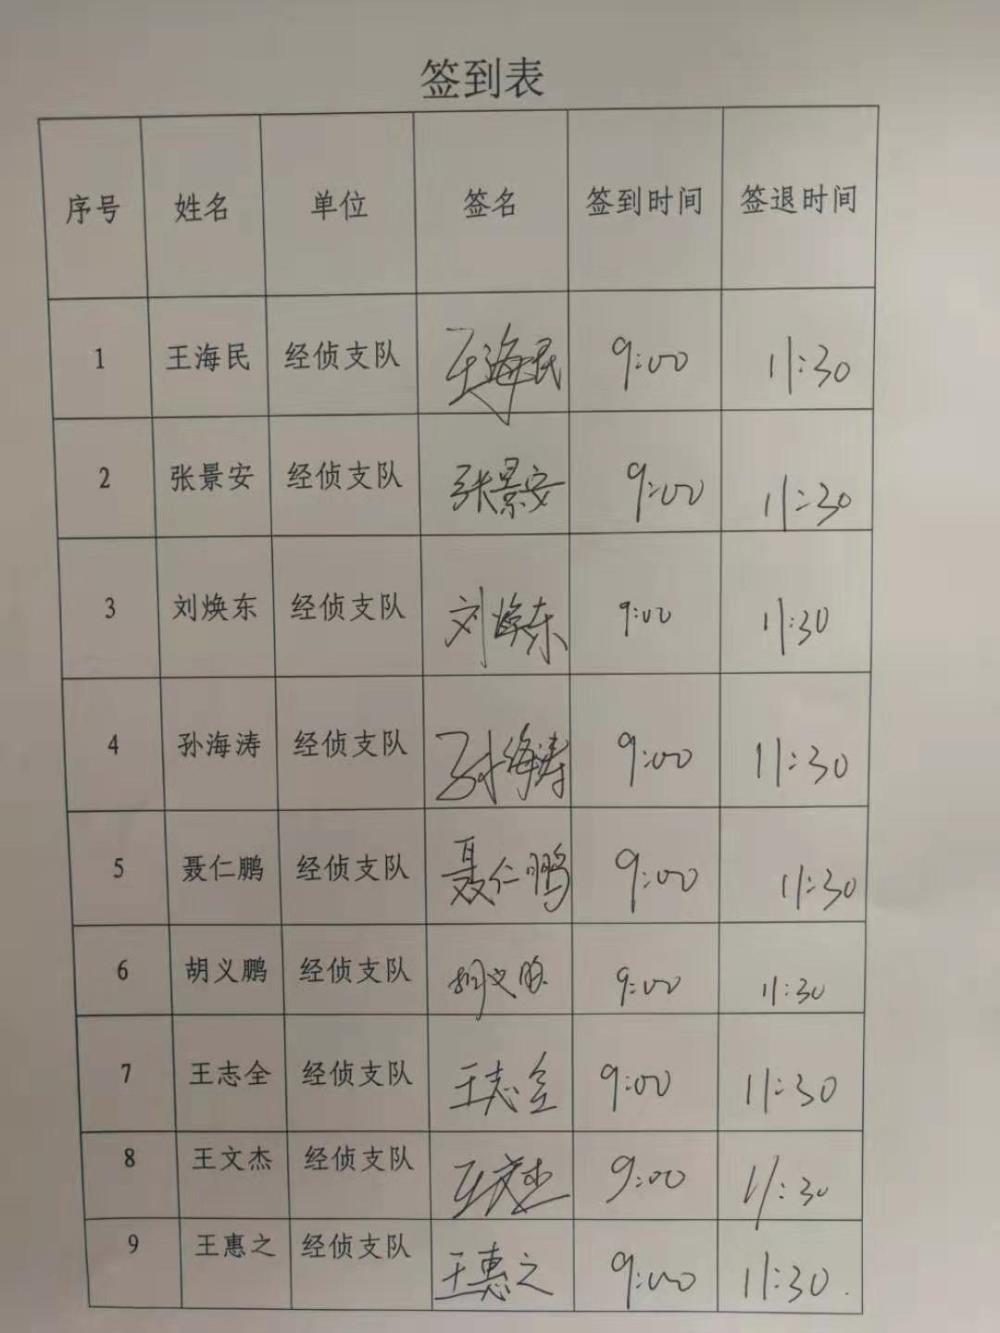 签到表
序号 姓名 单位 签名 签到时间 签退时间
1 王海民 经侦支队 王海民 9:00 11:30
2 张景安 经侦支队 张景安 9:00 11:30
3 刘焕东 经侦支队 刘焕东 9:00 11:30
4 孙海涛 经侦支队 孙海涛 9:00 11:30
5 聂仁鹏 经侦支队 聂仁鹏 9:00 11:30
6 胡义鹏 经侦支队 胡义鹏 9:00 11:30
7 王志全 经侦支队 王志全 9:00 11:30
8 王文杰 经侦支队 王文杰 9:00 11:30
9 王惠之 经侦支队 王惠之 9:00 11:30.